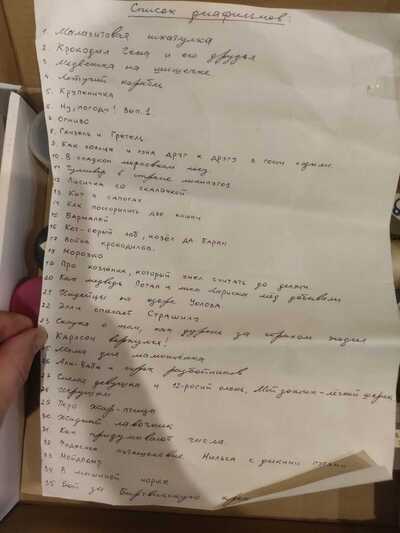 Список диафильмов:
1. Малахитовая шкатулка
2. Крокодил Гена и его друзья
3. Медвежка на
4. Летучий корабль
5. Крупеничка
6. Ну, погоди! Вып. 1
7. Огниво
8. Гензель и Гретель
9. Как солнце и луна друг к другу в гости ходили
10. В сладком морковном лесу
11. Гулливер в стране лилипутов
12. Лисичка со скалочкой
13. Кот в сапогах
14. Как поссорились две
15. Бармалей
16. Кот-серый лоб, козёл да баран
17. Война крокодила
18. Морозко
19. Про козлёнка, который умел считать до десяти
20. Как медведь Потап и лиса мёд добывали
21. Индейцы на озере
22. Элли спасает Страшилу
23. Сказка о том, как дурень за ходил
24. Карлсон вернулся!
25. Мама для мамонтёнка
26. Али-баба и сорок разбойников
27. девушка и олень,
28. Игрушки
29. Перо жар-птицы
30. Жадный лавочник
31. Как придумывают числа
32. Чудесное путешествие Нильса с дикими гусями
33. Мойдодыр
34. В мышиной норке
35. Бой за